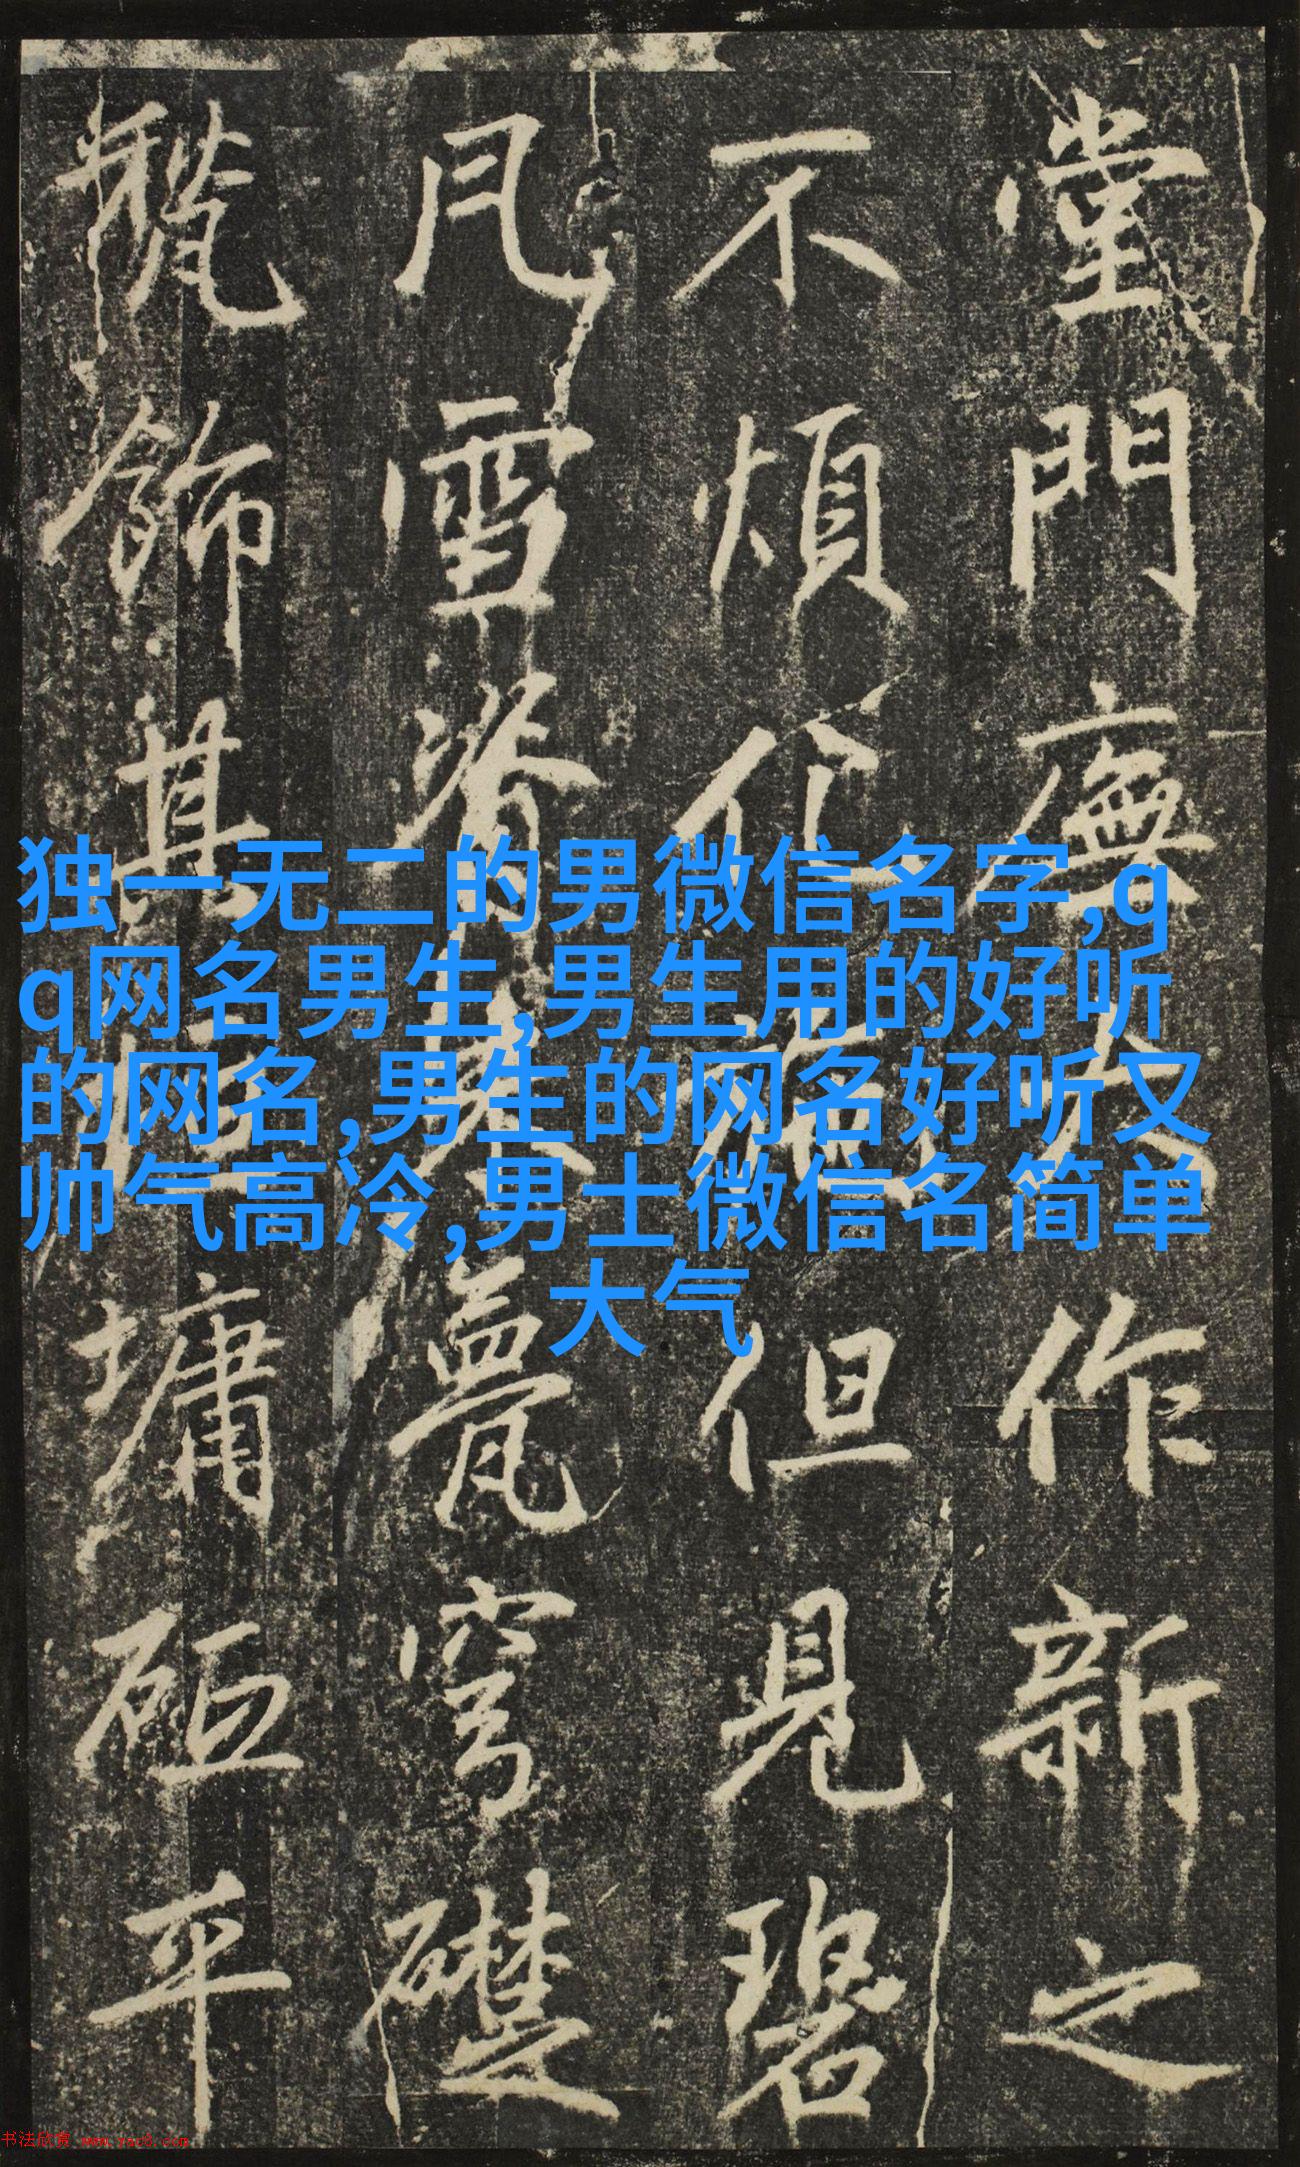 堂門廡大作新之
不煩化施但見碧
凡雪脊甍穹礎
飾其垣墉砠平
独一无二的男微信名字,q
q网名男生,男生用的好听
的网名,男生的网名好听又
帅气高冷,男士微信名简单
大气
书法欣赏 www.yac8.com